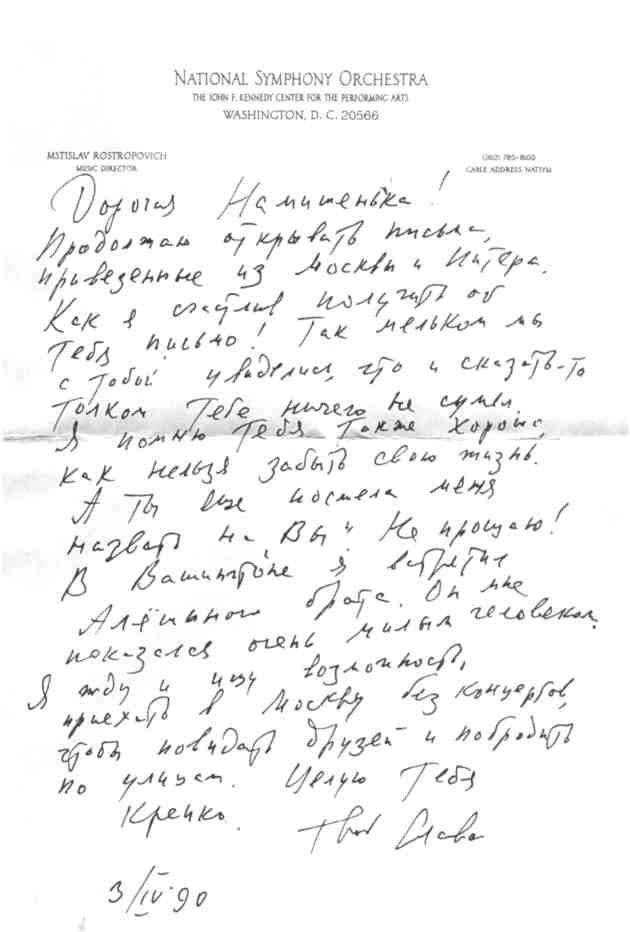 NATIONAL SYMPHONY ORCHESTRA
THE JOHN F. KENNEDY CENTER FOR THE PERFORMING ARTS
WASHINGTON, D. C. 20566
MSTISLAV ROSTROPOVICH
MUSIC DIRECTOR
(202) 785-8100
CABLE ADDRESS NATSYM
Дорогая Намишенька!
Продолжаю открывать письма,
приведенные из Москвы и Питера.
Как я счастлив получить от
Тебя письмо! Так мельком мы
с тобой увиделись, что и сказать-то
толком Тебе ничего не сумел.
Я помню Тебя также хорошо,
как нельзя забыть свою жизнь.
А Ты еще посмела меня
назвать на "Вы". Не прощаю!
В Вашингтоне я встретил
Алёшиного брата. Он мне
показался очень милым человеком.
Я жду и ищу возможность,
приехать в Москву без концертов,
чтобы повидать друзей и побродить
по улицам. Целую Тебя
Крепко.
Твой Слава
3/IV-90